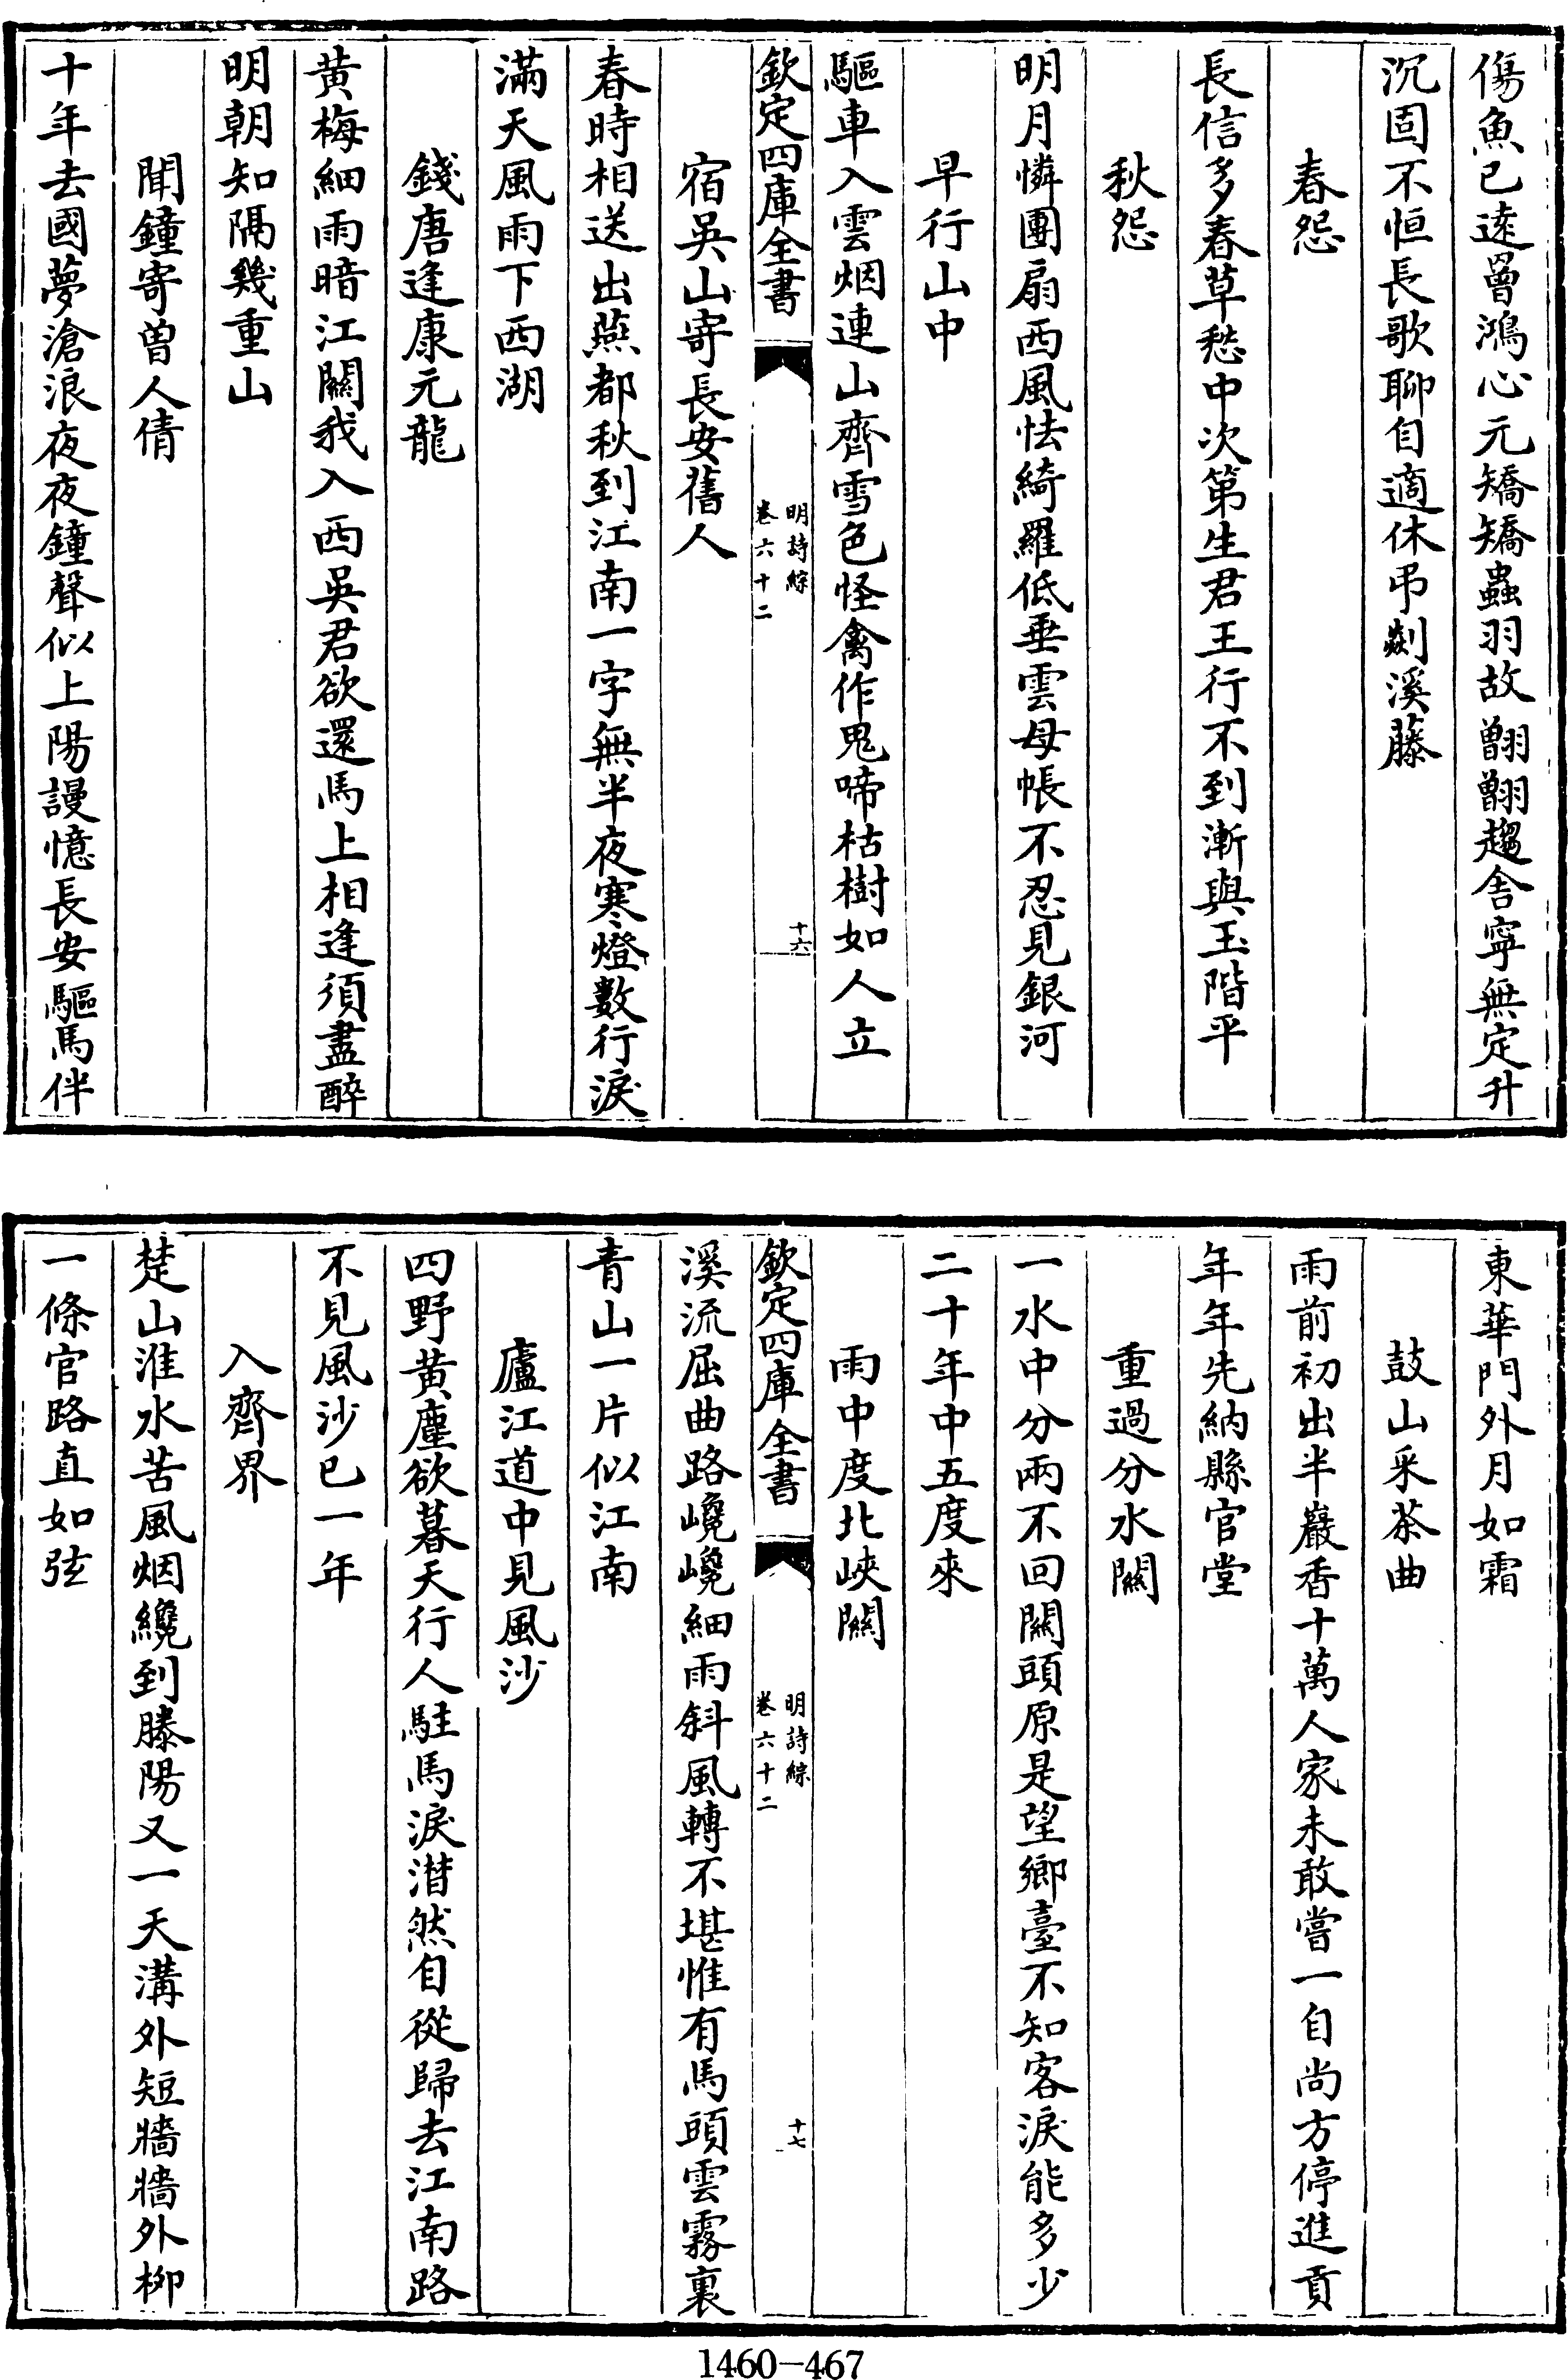 傷魚已逺罾鴻心元矯矯蟲羽故翾翾趨舍寧無定升
沉固不恒長歌聊自適休弔剡溪藤
春怨
長信多春草愁中次第生君王行不到漸與玉階平
秋怨
明月憐團扇西風怯綺羅低垂雲母帳不忍見銀河
早行山中
驅車入雲烟連山齊雪色怪禽作鬼啼枯樹如人立
欽定四庫全書
明詩綜
卷六十二
十六
宿吳山寄長安舊人
春時相送出燕都秋到江南一字無半夜寒燈數行淚
滿天風雨下西湖
錢唐逢康元龍
黄梅細雨暗江關我入西吳君欲還馬上相逢須盡醉
明朝知隔幾重山
聞鐘寄曽人倩
十年去國夢滄浪夜夜鐘聲似上陽謾憶長安驅馬伴
東華門外月如霜
鼓山采茶曲
雨前初出半巖香十萬人家未敢嘗一自尚方停進貢
年年先納縣官堂
重過分水關
一水中分兩不回關頭原是望鄉臺不知客淚能多少
二十年中五度來
雨中度北峽關
欽定四庫全書
明詩綜
卷六十二
十七
溪流屈曲路巉巉細雨斜風轉不堪惟有馬頭雲霧裏
青山一片似江南
廬江道中見風沙
四野黄塵欲暮天行人駐馬淚潸然自從歸去江南路
不見風沙已一年
入齊界
楚山淮水苦風烟纔到滕陽又一天溝外短牆牆外柳
一條官路直如弦
1460-467